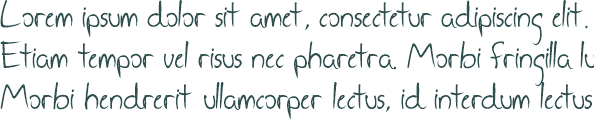 Lorem ipsum dolor sit amet, consectetur adipiscing elit.
Etiam tempor vel risus nec pharetra. Morbi fringilla lu
Morbi hendrerit ullamcorper lectus, id interdum lectus